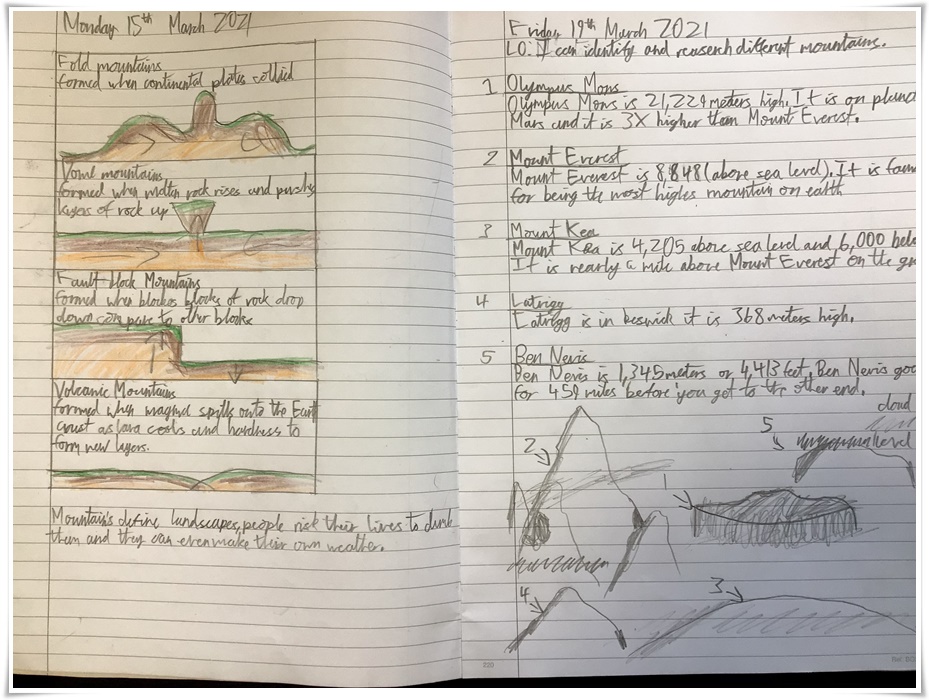 Monday 15th March 2021
Fold mountains
formed when continental plates collied
Dome mountains
formed when molten rock rises and pushes
layers of rock up
Fault-block Mountains
formed when blockos blocks of rock drop
down compare to other blocks
Volcanic Mountains
formed when magma spills onto the Earth
crust as lava cools and hardness to
form new layers.
Mountain's define landscapes, people risk their lives to climb
them and they can even make their own weather.
Friday 19th March 2021
L.O. I can identify and reaserch different mountains.
1 Olympus Mons
Olympus Mons is 21,229 meters high. It is on plane
Mars and it is 3X higher than Mount Everest.
2 Mount Everest
Mount Everest is 8,848 (above sea level). It is fam
for being the most highes mountain on earth
3 Mount Kea
Mount Kea is 4,205 above sea level and 6,000 bel
It is nearly a mile above Mount Everest on the gr
4 Latrigg
Latrigg is in keswick it is 368 meters high.
5 Ben Nevis
Ben Nevis is 1,345 meters or 4,413 feet. Ben Nevis goe
for 459 miles before you get to the other end.
cloud
level
5
2
1
4
3
220